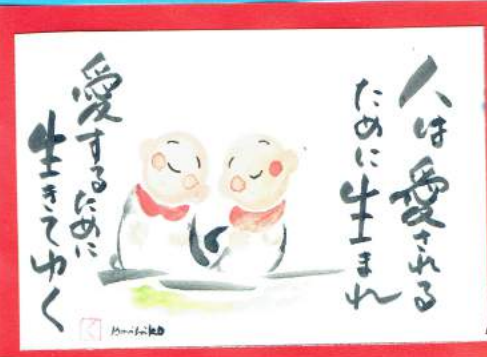 人は愛される
ために生まれ
愛するために
生きてゆく